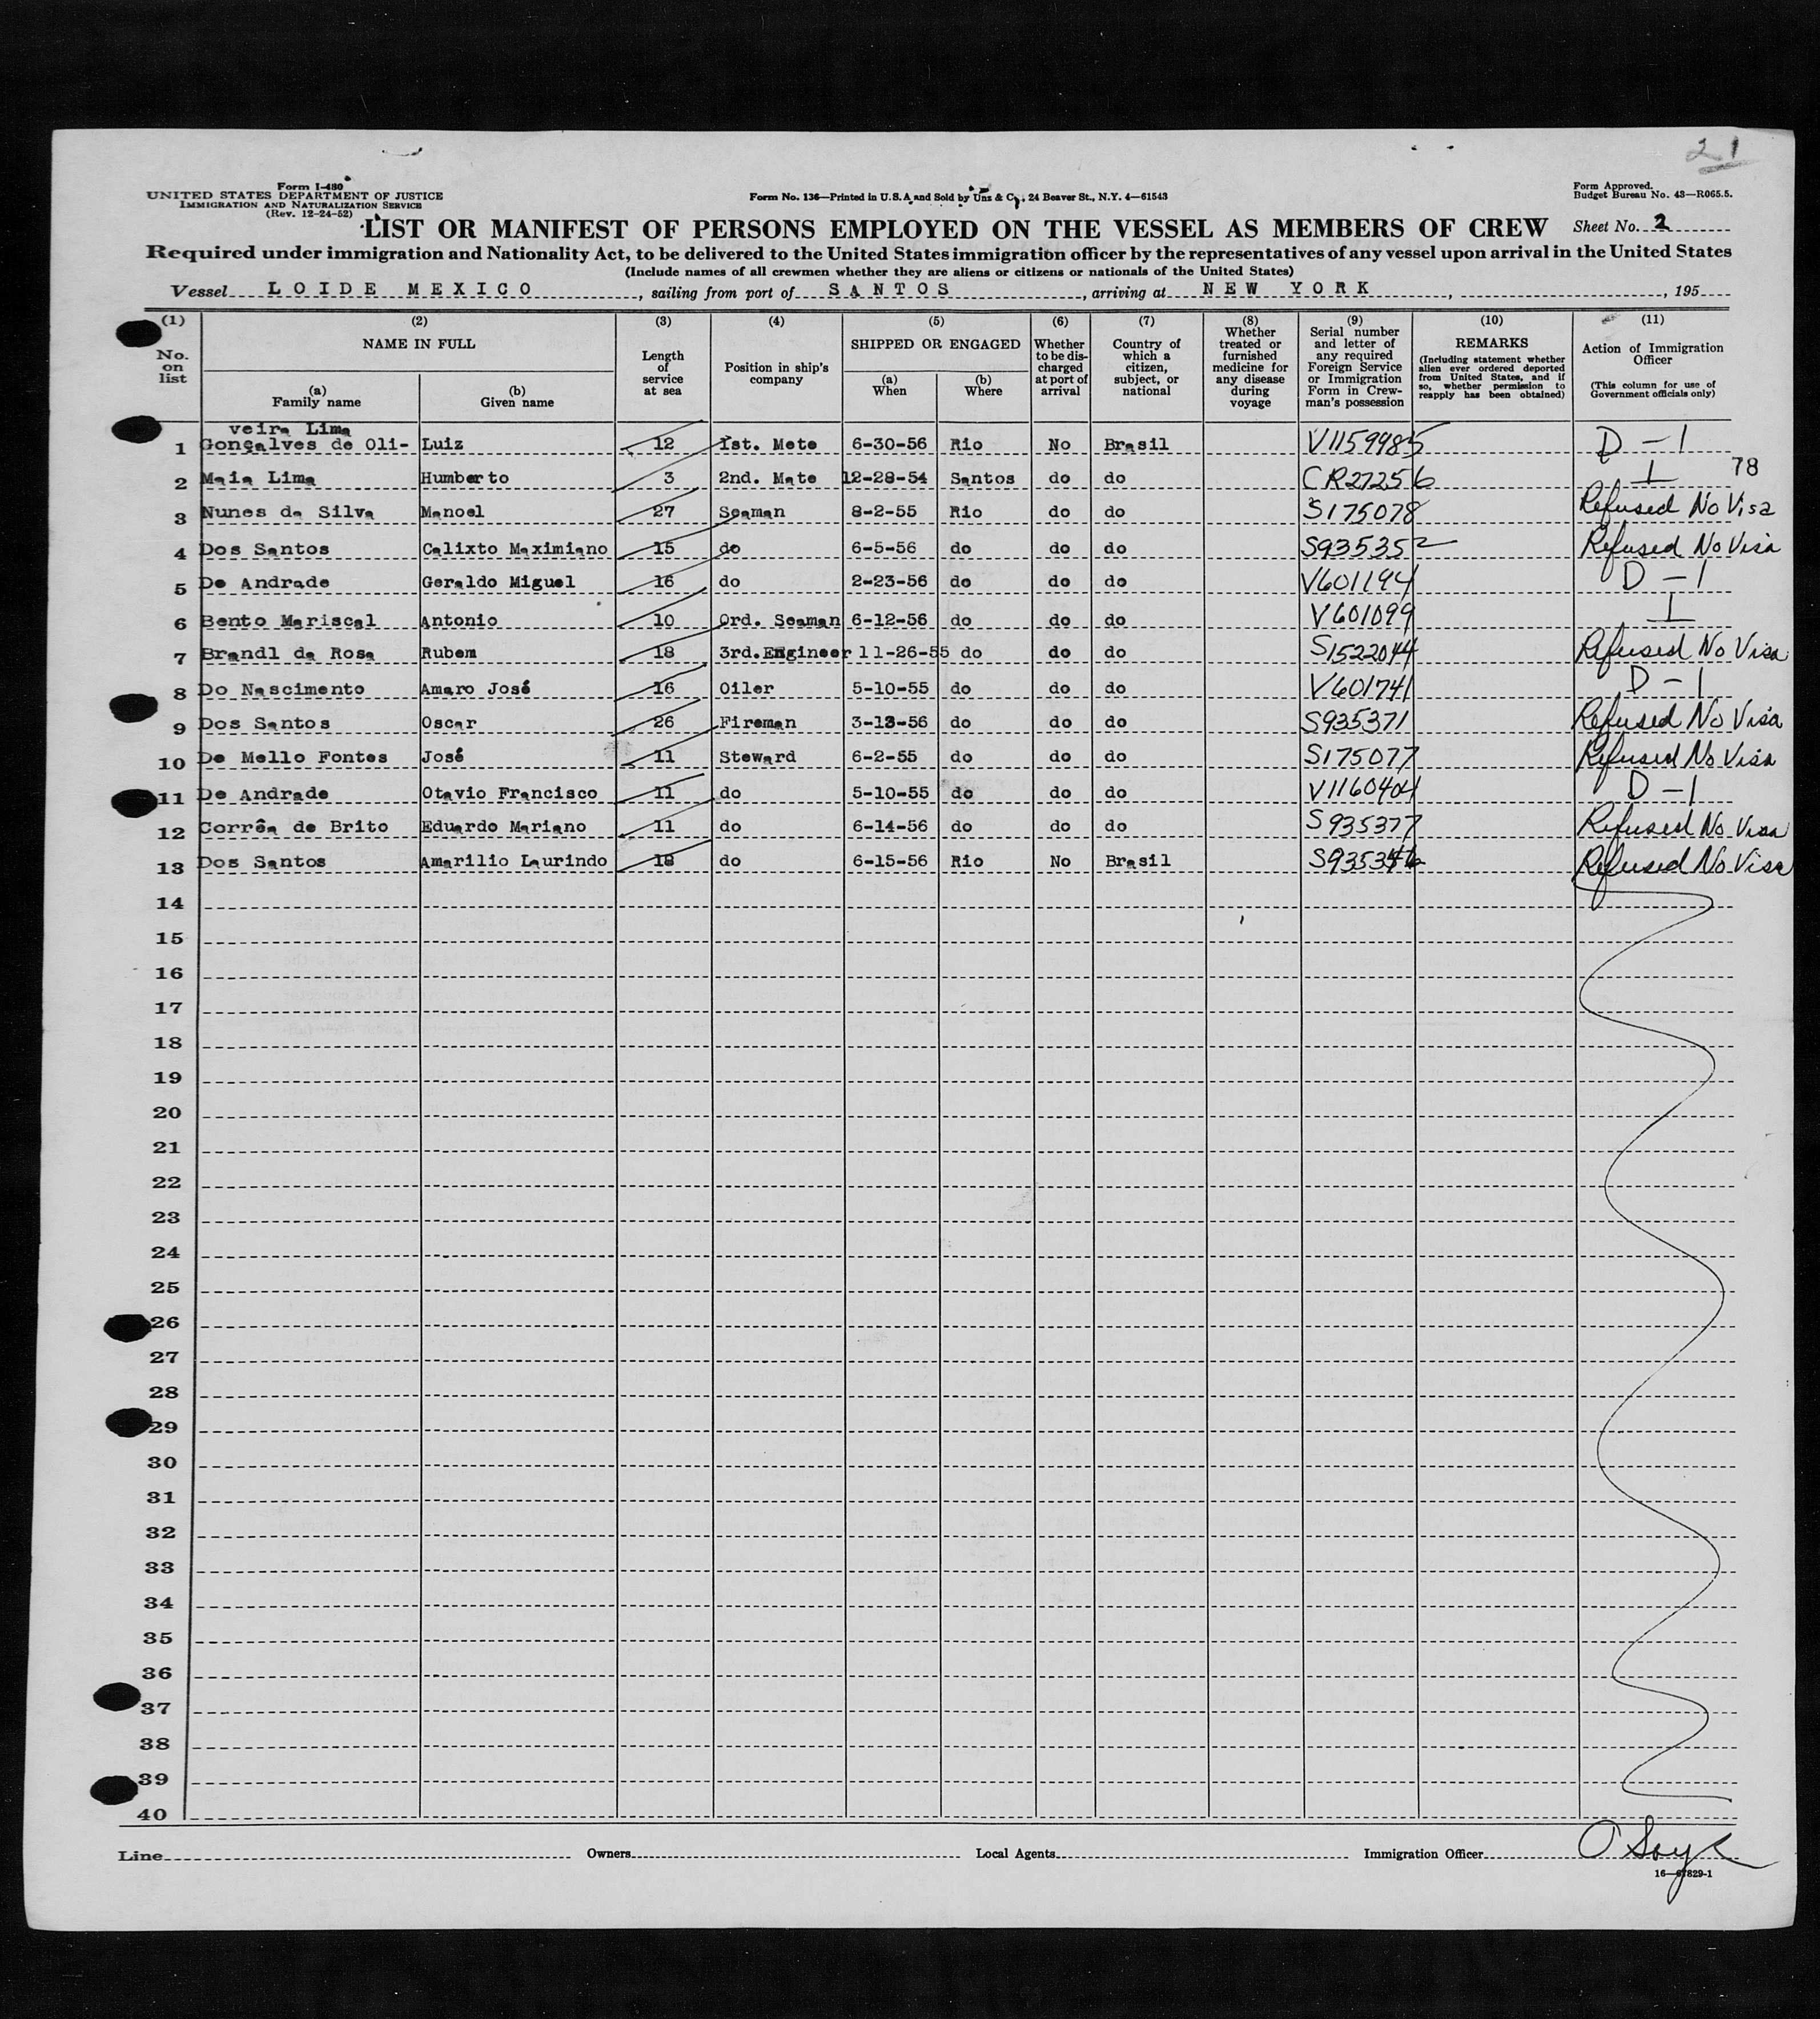 21
Form I-480
UNITED STATES DEPARTMENT OF JUSTICE
IMMIGRATION AND NATURALIZATION SERVICE
(Rev. 12-24-52)
Form No. 136—Printed in U.S.A. and Sold by Unz & Co., 24 Beaver St., N.Y. 4—61543
Form Approved.
Budget Bureau No. 43—R065.5.
LIST OR MANIFEST OF PERSONS EMPLOYED ON THE VESSEL AS MEMBERS OF CREW
Sheet No. 2
Required under immigration and Nationality Act, to be delivered to the United States immigration officer by the representatives of any vessel upon arrival in the United States
(Include names of all crewmen whether they are aliens or citizens or nationals of the United States)
Vessel LOIDE MEXICO, sailing from port of SANTOS, arriving at NEW YORK, , 195
(1) No. on list
(2) NAME IN FULL
(a) Family name
(b) Given name
(3) Length of service at sea
(4) Position in ship's company
(5) SHIPPED OR ENGAGED
(a) When
(b) Where
(6) Whether to be discharged at port of arrival
(7) Country of which a citizen, subject, or national
(8) Whether treated or furnished medicine for any disease during voyage
(9) Serial number and letter of any required Foreign Service or Immigration Form in Crewman's possession
(10) REMARKS (Including statement whether alien ever ordered deported from United States, and if so, whether permission to reapply has been obtained)
(11) Action of Immigration Officer (This column for use of Government officials only)
veira Lima
1 Gonçalves de Oli- Luiz 12 1st. Mete 6-30-56 Rio No Brasil V1159985 D-1
2 Maia Lima Humberto 3 2nd. Mate 12-28-54 Santos do do CR27256 ⊥ 78
3 Nunes da Silva Manoel 27 Seaman 8-2-55 Rio do do S175078 Refused No Visa
4 Dos Santos Calixto Maximiano 15 do 6-5-56 do do do S935352 Refused No Visa
5 De Andrade Geraldo Miguel 16 do 2-23-56 do do do V601194 D-1
6 Bento Mariscal Antonio 10 Ord. Seaman 6-12-56 do do do V601099 ⊥
7 Brandl da Rosa Rubem 18 3rd.Engineer 11-26-55 do do do S1522044 Refused No Visa
8 Do Nascimento Amaro José 16 Oiler 5-10-55 do do do V601741 D-1
9 Dos Santos Oscar 26 Fireman 3-13-56 do do do S935371 Refused No Visa
10 De Mello Fontes José 11 Steward 6-2-55 do do do S175077 Refused No Visa
11 De Andrade Otavio Francisco 11 do 5-10-55 do do do V1160404 D-1
12 Corrêa de Brito Eduardo Mariano 11 do 6-14-56 do do do S935377 Refused No Visa
13 Dos Santos Amarilio Laurindo 18 do 6-15-56 Rio No Brasil Refused No Visa
14
15
16
17
18
19
20
21
22
23
24
25
26
27
28
29
30
31
32
33
34
35
36
37
38
39
40
Line Owners Local Agents Immigration Officer
16—67829-1